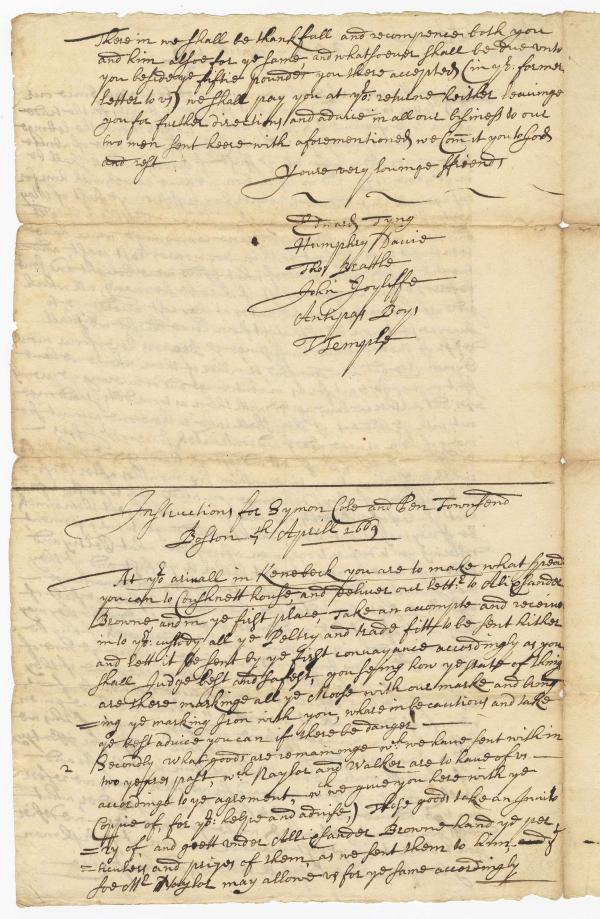 There in we shall be thankfull and recompence both you
and him alsoe for ye same, and whatsoever shall be due unto
you besides ye fiftie pounds you there accepted (in yr: former
letter to us) we shall pay you at yor: returne heither leaveinge
you for further directions and advice in all our bisiness to our
two men sent heere with aforementioned we Comit you to God
and rest
Youre very loveinge ffriends
Edward Tyng
Humphry Davie
Tho: Brattle
John Joyliffe
Antipas Boys
T Temple
Instructions for Symon Cole and Ben Townsend
Boston 5th Aprill 1669
At yor arivall in Kenebeck you are to make what speed
you can to Cushnett house and deliver our lettr: to Allexsander
Browne and in ye first place, Take an accompte and receive
in to yr: custody all ye Peltry and trade fitt to be sent hither
and lett it be sent by ye first conveyance accordingly as you
shall Judge best and safest, you seing how ye state of things
are there markinge all ye Moose with our marke and bring
=ing ye marking Iron with you, where in be cautious and take
ye best advice you can if there be danger
2 Secondly what goods are remainenge wch we have sent with in
two yeares past, wch Naylor and Walker are to have of us
accordinge to ye agrement, wch we give you here with ye
Coppie of, for yr: helpe and advise,) Those goods take an Invito
=ry of and gett under Allexsander Browne hand ye per
=ticulers and prizes of them, as we sent them to him, and
soe Mr Naylor may allowe us for ye same accordingly